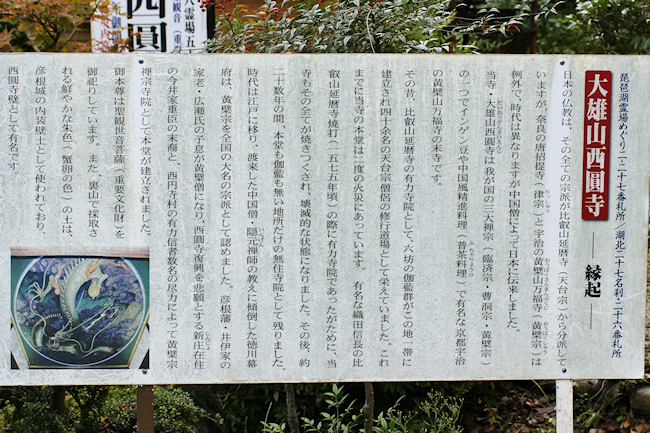 琵琶湖霊場めぐり二十七番札所 湖北二十七名刹二十六番札所
大雄山西圓寺
――縁起――
日本の仏教は、その全ての宗派が比叡山延暦寺(天台宗)から分派して
いますが、奈良の唐招提寺(律宗)と宇治の黄檗山万福寺(黄檗宗)は
例外で、時代は異なりますが中国僧によって日本に伝来しました。
当寺・大雄山西圓寺は我が国の三大禅宗(臨済宗・曹洞宗・黄檗宗)
の一つでインゲン豆や中国風精進料理(普茶料理)で有名な京都宇治
の黄檗山万福寺の末寺です。
その昔、比叡山延暦寺の有力寺院として、六坊の伽藍群がこの地一帯に
建立され四十余名の天台宗僧侶の修行道場として栄えていました。これ
までに当寺の本堂は二度の火災にあっています。有名な織田信長の比
叡山延暦寺焼打(一五七五年頃)の際に有力寺院であったがために、当
寺もその全てが焼きつくされ、壊滅的な状態になりました。その後、約
二十数年の間、本堂も伽藍も無い地所だけの無住寺院として残りました。
時代は江戸に移り、渡来した中国僧・隠元禅師の教えに傾倒した徳川幕
府は、黄檗宗を全国の大名の宗派として認めました。彦根藩・井伊家の
家老・広瀬氏の子息が黄檗僧になり、西圓寺復興を悲願とする新庄在住
の今井家重臣の末裔と、西円寺村の有力信者数名の尽力によって黄檗宗
禅宗寺院として本堂が建立されました。
御本尊は聖観世音菩薩(重要文化財)を
御祀りしています。また、裏山で採取さ
れる鮮やかな朱色(蟹卵の色)の土は、
彦根城の内装壁土として使われており、
西圓寺壁として有名です。
西圓